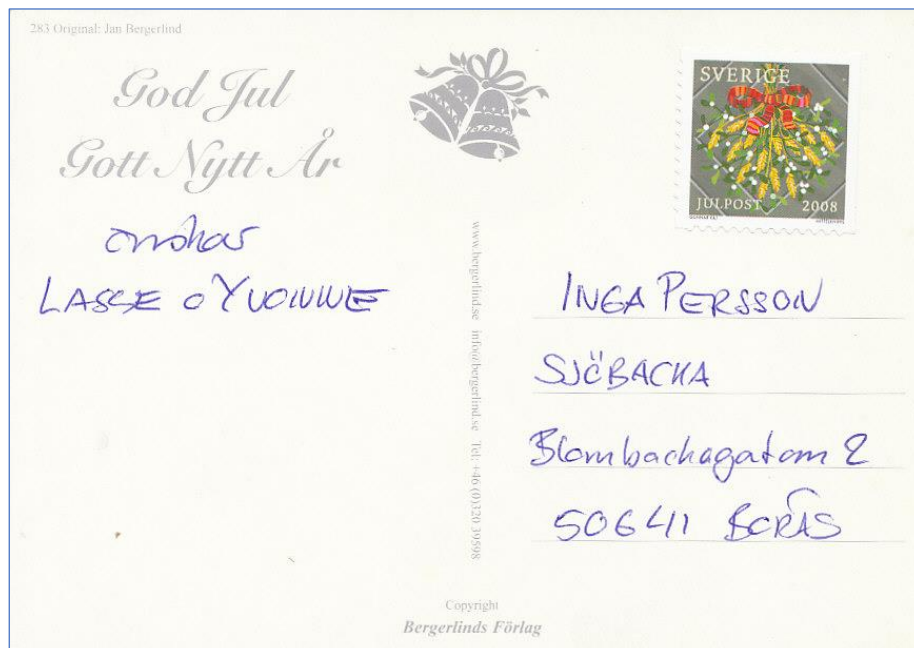 283 Original: Jan Bergerlind
God Jul
Gott Nytt År
önskar
LASSE o YVONNE
SVERIGE
JULPOST 2008
www.bergerlind.se info@bergerlind.se Tel: +46 (0)320 39598
INGA PERSSON
SJÖBACKA
Blombackagatan 2
506 41 BORÅS
Copyright
Bergerlinds Förlag